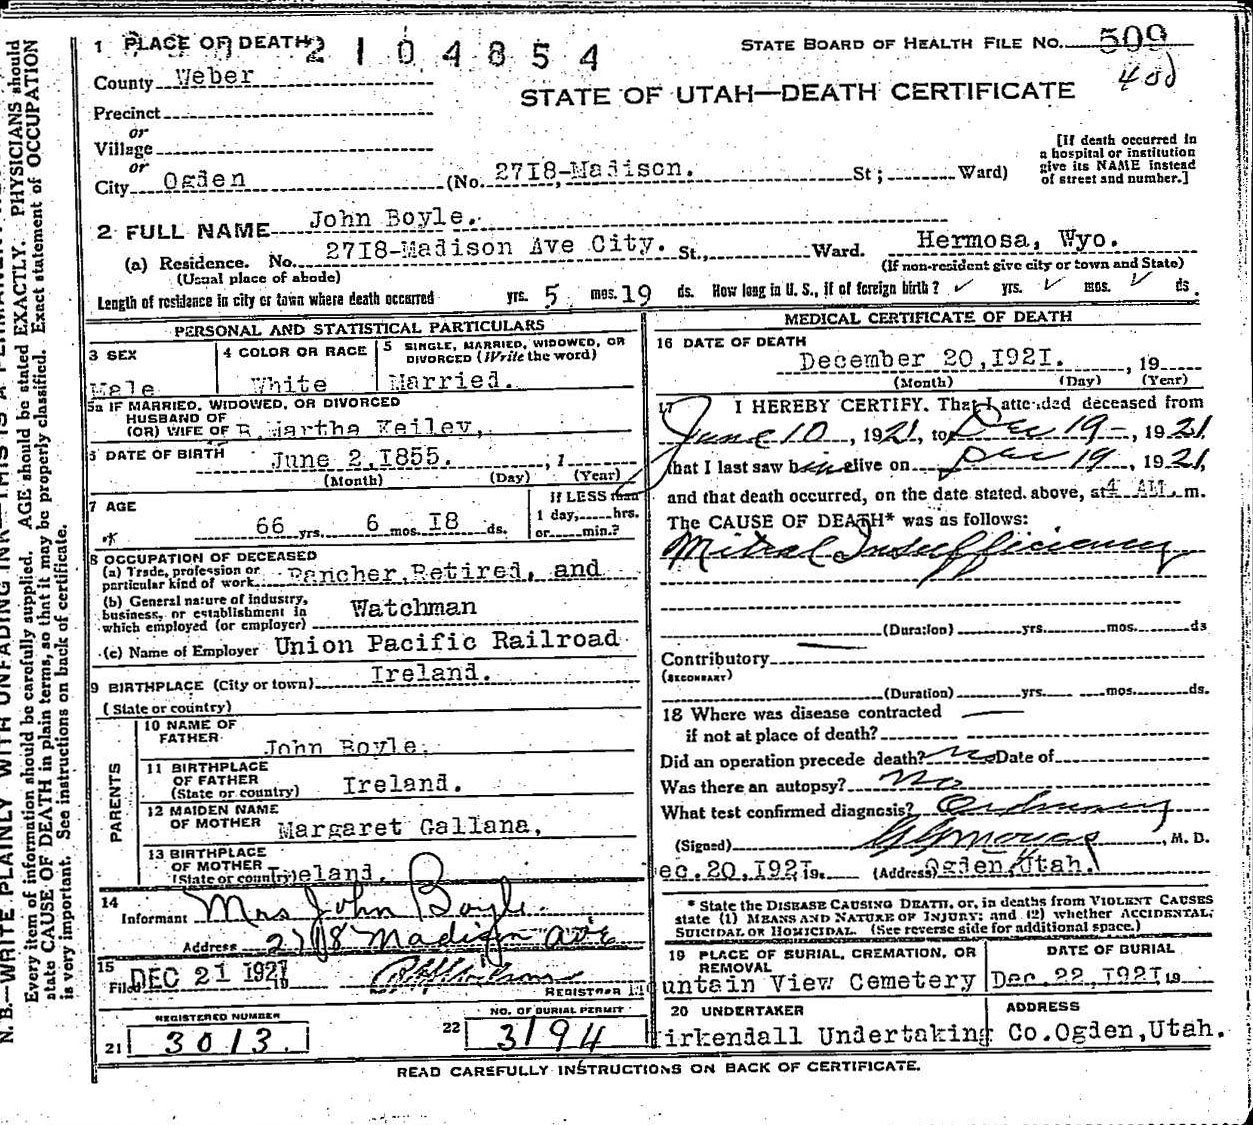 1 PLACE OF DEATH 2104854
STATE BOARD OF HEALTH FILE NO. 509
400
County Weber
STATE OF UTAH—DEATH CERTIFICATE
Precinct
or
Village
or
City Ogden (No. 27I8-Madison. St; Ward)
[If death occurred in
a hospital or institution
give its NAME instead
of street and number.]
2 FULL NAME John Boyle.
(a) Residence. No. 27I8-Madison Ave City. St., Ward. Hermosa, Wyo.
(Usual place of abode) (If non-resident give city or town and State)
Length of residence in city or town where death occurred yrs. 5 mos. 19 ds. How long in U. S., if of foreign birth? ✓ yrs. ✓ mos. ✓ ds.
PERSONAL AND STATISTICAL PARTICULARS
3 SEX
Male
4 COLOR OR RACE
White
5 SINGLE, MARRIED, WIDOWED, OR
DIVORCED (Write the word)
Married.
5a IF MARRIED, WIDOWED, OR DIVORCED
HUSBAND OF
(OR) WIFE OF B. Martha Keiley,
6 DATE OF BIRTH June 2,I855. , 1
(Month) (Day) (Year)
7 AGE
66 yrs. 6 mos. I8 ds.
If LESS than
1 day, hrs.
or min.?
8 OCCUPATION OF DECEASED
(a) Trade, profession or
particular kind of work Rancher,Retired, and
(b) General nature of industry,
business, or establishment in
which employed (or employer) Watchman
(c) Name of Employer Union Pacific Railroad
9 BIRTHPLACE (City or town) Ireland.
(State or country)
PARENTS
10 NAME OF
FATHER John Boyle.
11 BIRTHPLACE
OF FATHER
(State or country) Ireland.
12 MAIDEN NAME
OF MOTHER Margaret Gallana,
13 BIRTHPLACE
OF MOTHER
(State or country) Ireland.
14
Informant Mrs John Boyle
Address 2718 Madison ave
15
Filed DEC 21 1921
REGISTRAR
REGISTERED NUMBER
21 3013.
NO. OF BURIAL PERMIT
22 3194
MEDICAL CERTIFICATE OF DEATH
16 DATE OF DEATH
December 20,I92I. , 19
(Month) (Day) (Year)
17 I HEREBY CERTIFY. That I attended deceased from
June 10, 1921, to Dec 19-, 1921
that I last saw him alive on Dec 19, 1921,
and that death occurred, on the date stated above, at 4 AM. m.
The CAUSE OF DEATH* was as follows:
Mitral Insufficiency
(Duration) yrs. mos. ds
Contributory
(SECONDARY)
(Duration) yrs. mos. ds.
18 Where was disease contracted
if not at place of death?
Did an operation precede death? no Date of
Was there an autopsy? no
What test confirmed diagnosis? Ordinary
(Signed) , M. D.
ec.20,I92I 19. (Address) Ogden,Utah.
* State the DISEASE CAUSING DEATH, or, in deaths from VIOLENT CAUSES
state (1) MEANS AND NATURE OF INJURY; and (2) whether ACCIDENTAL,
SUICIDAL OR HOMICIDAL. (See reverse side for additional space.)
19 PLACE OF BURIAL, CREMATION, OR
REMOVAL
Mountain View Cemetery
DATE OF BURIAL
Dec.22,I92I.19
20 UNDERTAKER
irkendall Undertaking Co.Ogden,Utah.
ADDRESS
READ CAREFULLY INSTRUCTIONS ON BACK OF CERTIFICATE.
N. B.—WRITE PLAINLY WITH UNFADING INK—THIS IS A PERMANENT
Every item of information should be carefully supplied. AGE should be stated EXACTLY. PHYSICIANS should
state CAUSE OF DEATH in plain terms, so that it may be properly classified. Exact statement of OCCUPATION
is very important. See instructions on back of certificate.